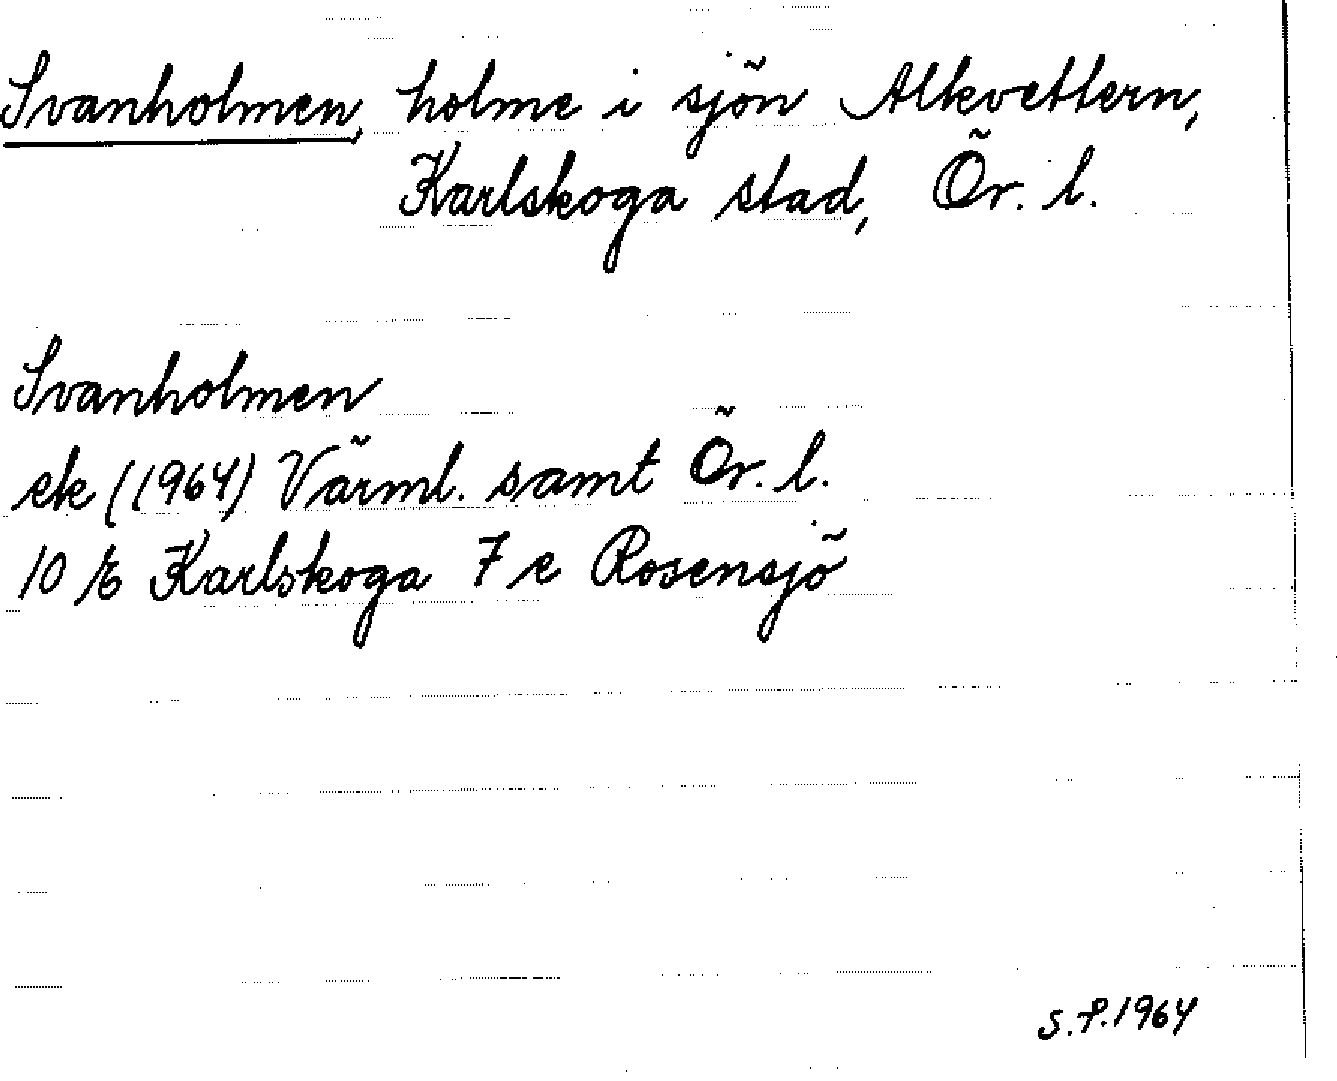 Svanholmen, holme i sjön Alkvettern,
Karlskoga stad, Ör. l.
Svanholmen
ek (1964) Värml. samt Ör. l.
10 E Karlskoga 7 e Rosensjö
S.P. 1964